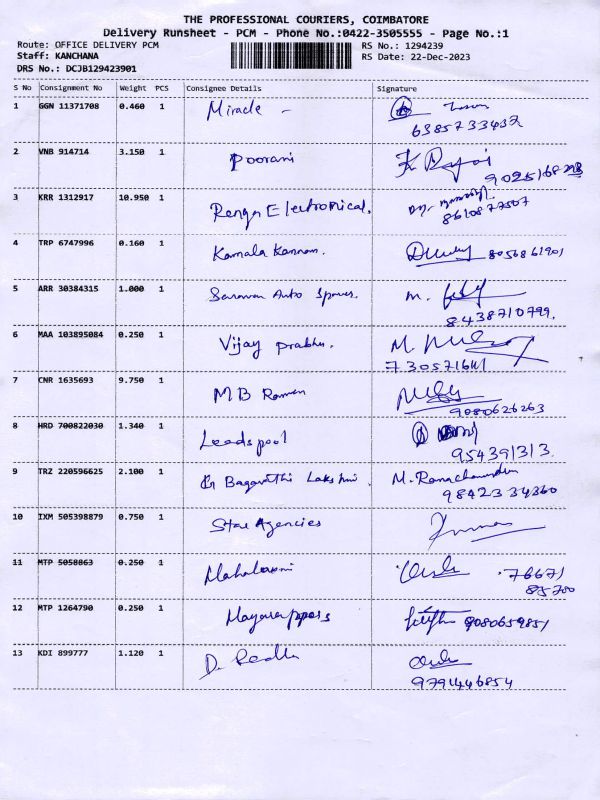 THE PROFESSIONAL COURIERS, COIMBATORE
Delivery Runsheet - PCM - Phone No.:0422-3505555 - Page No.:1
Route: OFFICE DELIVERY PCM RS No.: 1294239
Staff: KANCHANA RS Date: 22-Dec-2023
DRS No.: DCJB129423901
S No Consignment No Weight PCS Consignee Details Signature
1 GGN 11371708 0.460 1 Miracle -
6385733437
2 VNB 914714 3.150 1 Poorani
9025168298
3 KRR 1312917 10.950 1 Renga Electronical.
8610877507
4 TRP 6747996 0.160 1 Kamala Kannan. 8056861901
5 ARR 30384315 1.000 1 Saravan Auto Spares. m.
8438710799.
6 MAA 103895084 0.250 1 Vijay prabhu. M.
730571641
7 CNR 1635693 9.750 1 M B Raman
9080626263
8 HRD 700822030 1.340 1 Leedspool
954391313.
9 TRZ 220596625 2.100 1 Bagavathi Lakshmi. M. Ramachandran
9842334360
10 IXM 505398879 0.750 1 Star Agencies
11 MTP 5058863 0.250 1 Mahalaxmi 76671
85700
12 MTP 1264790 0.250 1 9080659851
13 KDI 899777 1.120 1 D.
9791446854